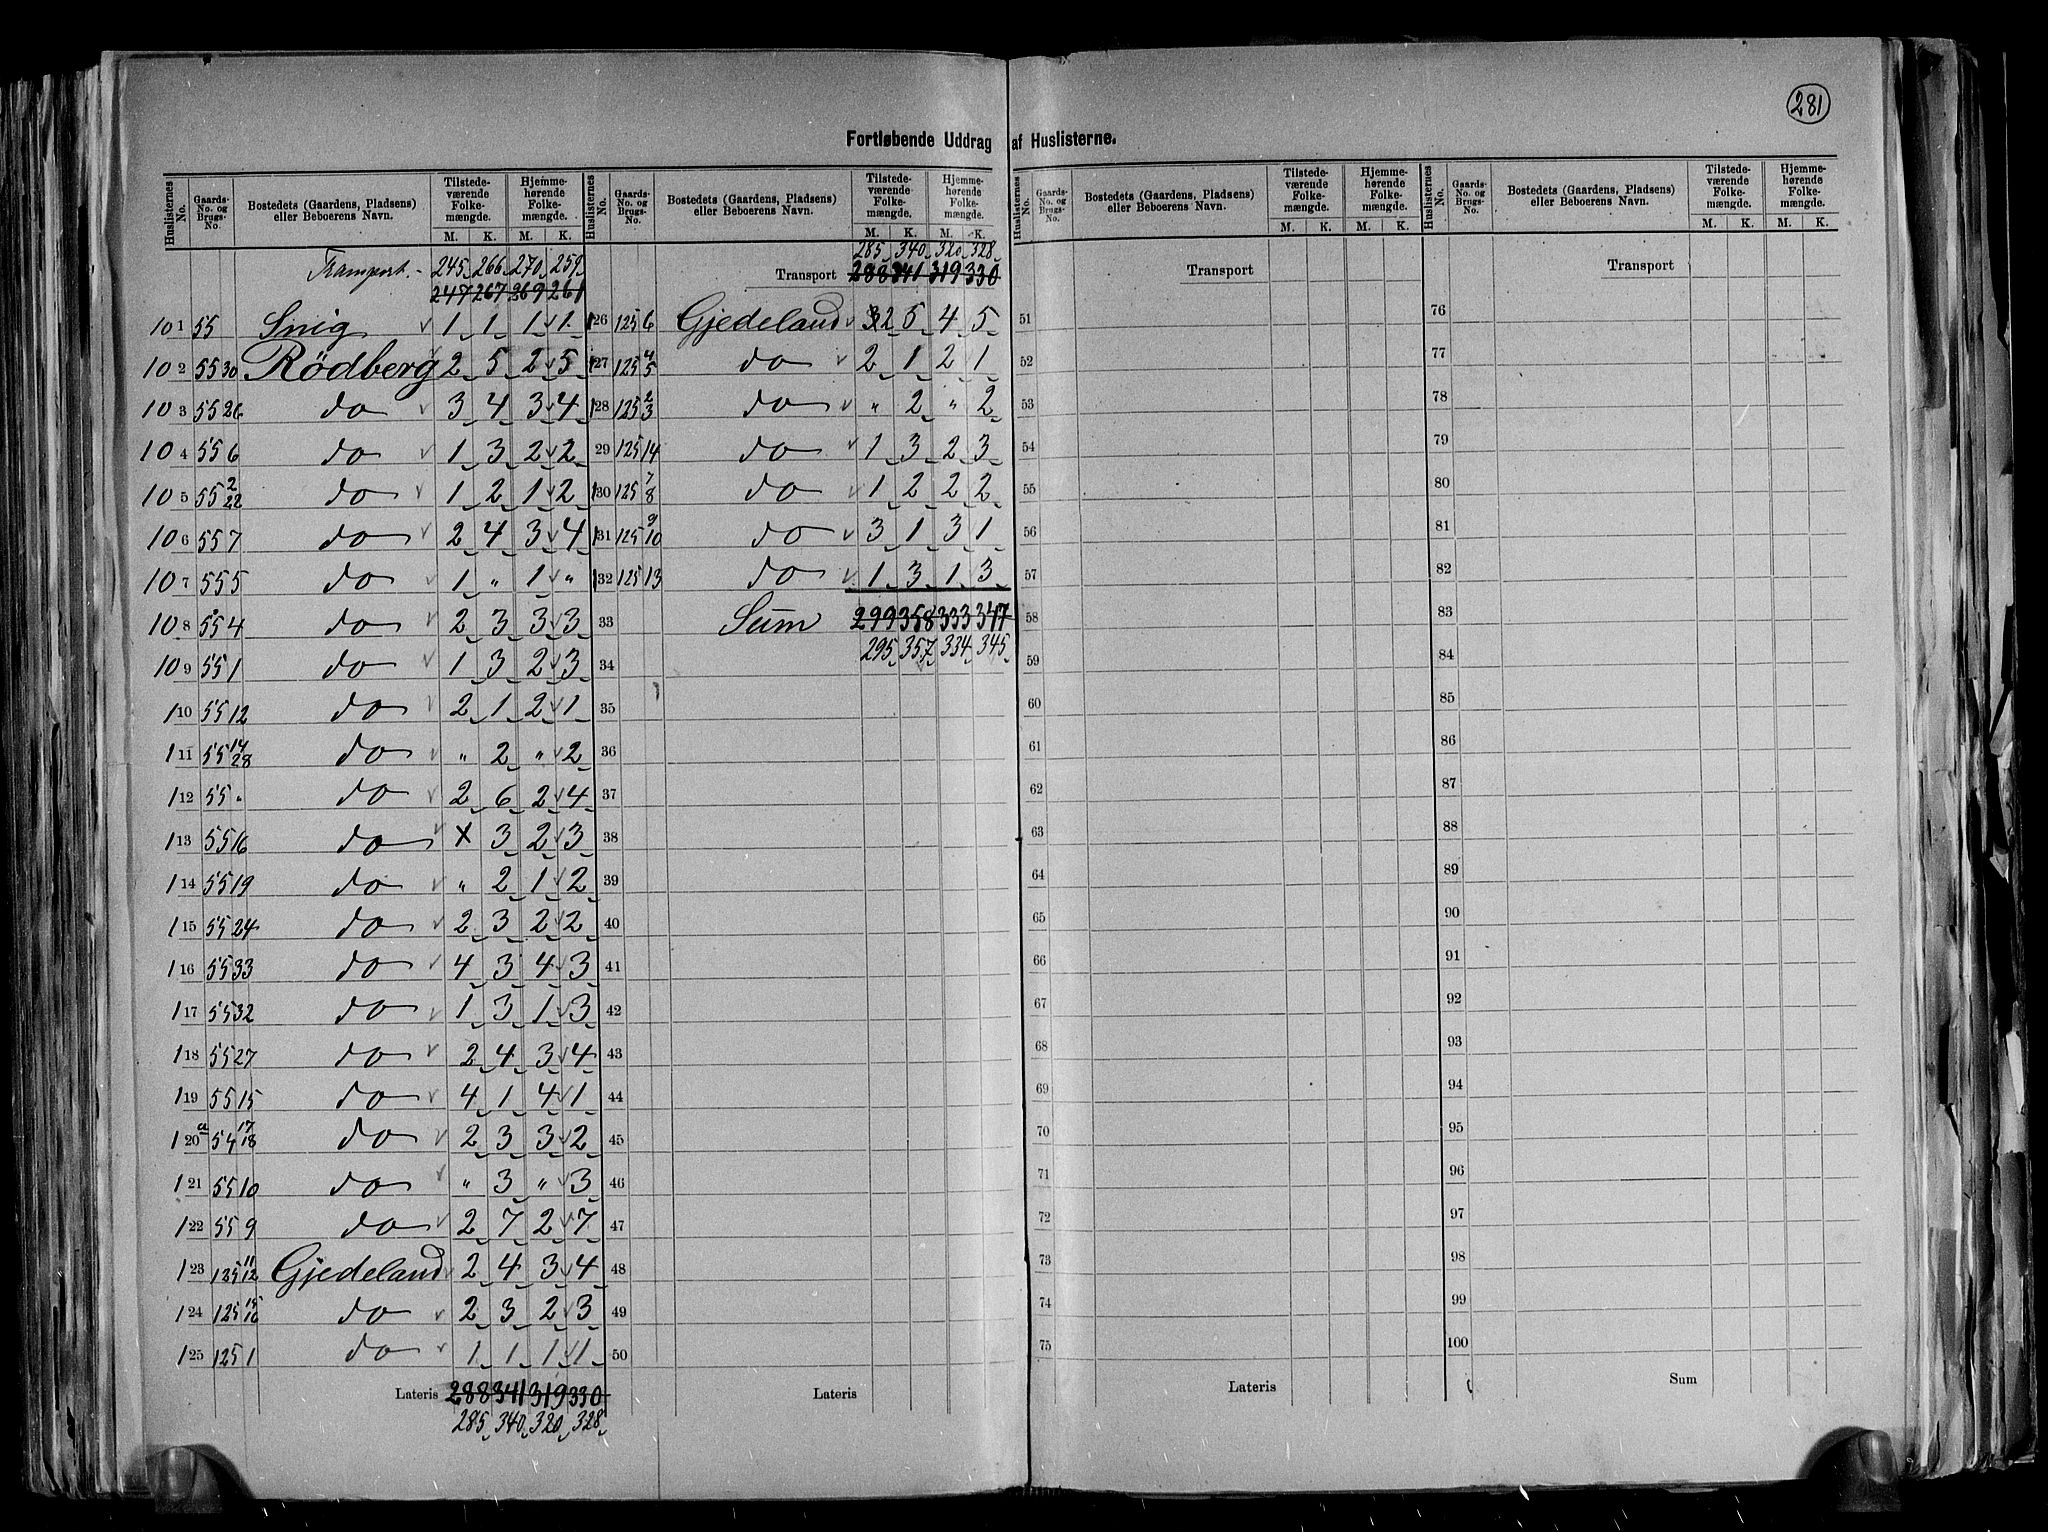 281
Fortløbende Uddrag af Huslisterne.
Huslisternes No. Gaards-No. og Brugs-No. Bostedets (Gaardens, Pladsens) eller Beboerens Navn. Tilstedeværende Folkemængde. M. K. Hjemmehørende Folkemængde. M. K.
Transport 245 266 270 259
247 267 269 261
101 55 Snig 1 1 1 1
102 55 30 Rödberg 2 5 2 5
103 55 26 do 3 4 3 4
104 55 6 do 1 3 2 2
105 55 2 22 do 1 2 1 2
106 55 7 do 2 4 3 4
107 55 5 do 1 " 1 "
108 55 4 do 2 3 3 3
109 55 1 do 1 3 2 3
110 55 12 do 2 1 2 1
111 55 14 28 do " 2 " 2
112 55 " do 2 6 2 4
113 55 16 do x 3 2 3
114 55 19 do " 2 1 2
115 55 24 do 2 3 2 2
116 55 33 do 4 3 4 3
117 55 32 do 1 3 1 3
118 55 27 do 2 4 3 4
119 55 15 do 4 1 4 1
120 a 54 17 18 do 2 3 3 2
121 55 10 do " 3 " 3
122 55 9 do 2 7 2 7
123 125 11 12 Gjedeland 2 4 3 4
124 125 15 16 do 2 3 2 3
125 125 1 do 1 1 1 1
Lateris 288 341 319 330
285 340 320 328
Huslisternes No. Gaards-No. og Brugs-No. Bostedets (Gaardens, Pladsens) eller Beboerens Navn. Tilstedeværende Folkemængde. M. K. Hjemmehørende Folkemængde. M. K.
285 340 320 328
Transport 288 341 319 330
126 125 6 Gjedeland 2 5 4 5
127 125 4 5 do 2 1 2 1
128 125 2 3 do " 2 " 2
29 125 14 do 1 3 2 3
130 125 7 8 do 1 2 2 2
131 125 9 10 do 3 1 3 1
132 125 13 do 1 3 1 3
33 Sum 299 358 333 347
295 357 334 345
34
35
36
37
38
39
40
41
42
43
44
45
46
47
48
49
50
Lateris
Huslisternes No. Gaards-No. og Brugs-No. Bostedets (Gaardens, Pladsens) eller Beboerens Navn. Tilstedeværende Folkemængde. M. K. Hjemmehørende Folkemængde. M. K.
Transport
51
52
53
54
55
56
57
58
59
60
61
62
63
64
65
66
67
68
69
70
71
72
73
74
75
Lateris
Huslisternes No. Gaards-No. og Brugs-No. Bostedets (Gaardens, Pladsens) eller Beboerens Navn. Tilstedeværende Folkemængde. M. K. Hjemmehørende Folkemængde. M. K.
Transport
76
77
78
79
80
81
82
83
84
85
86
87
88
89
90
91
92
93
94
95
96
97
98
99
100
Sum